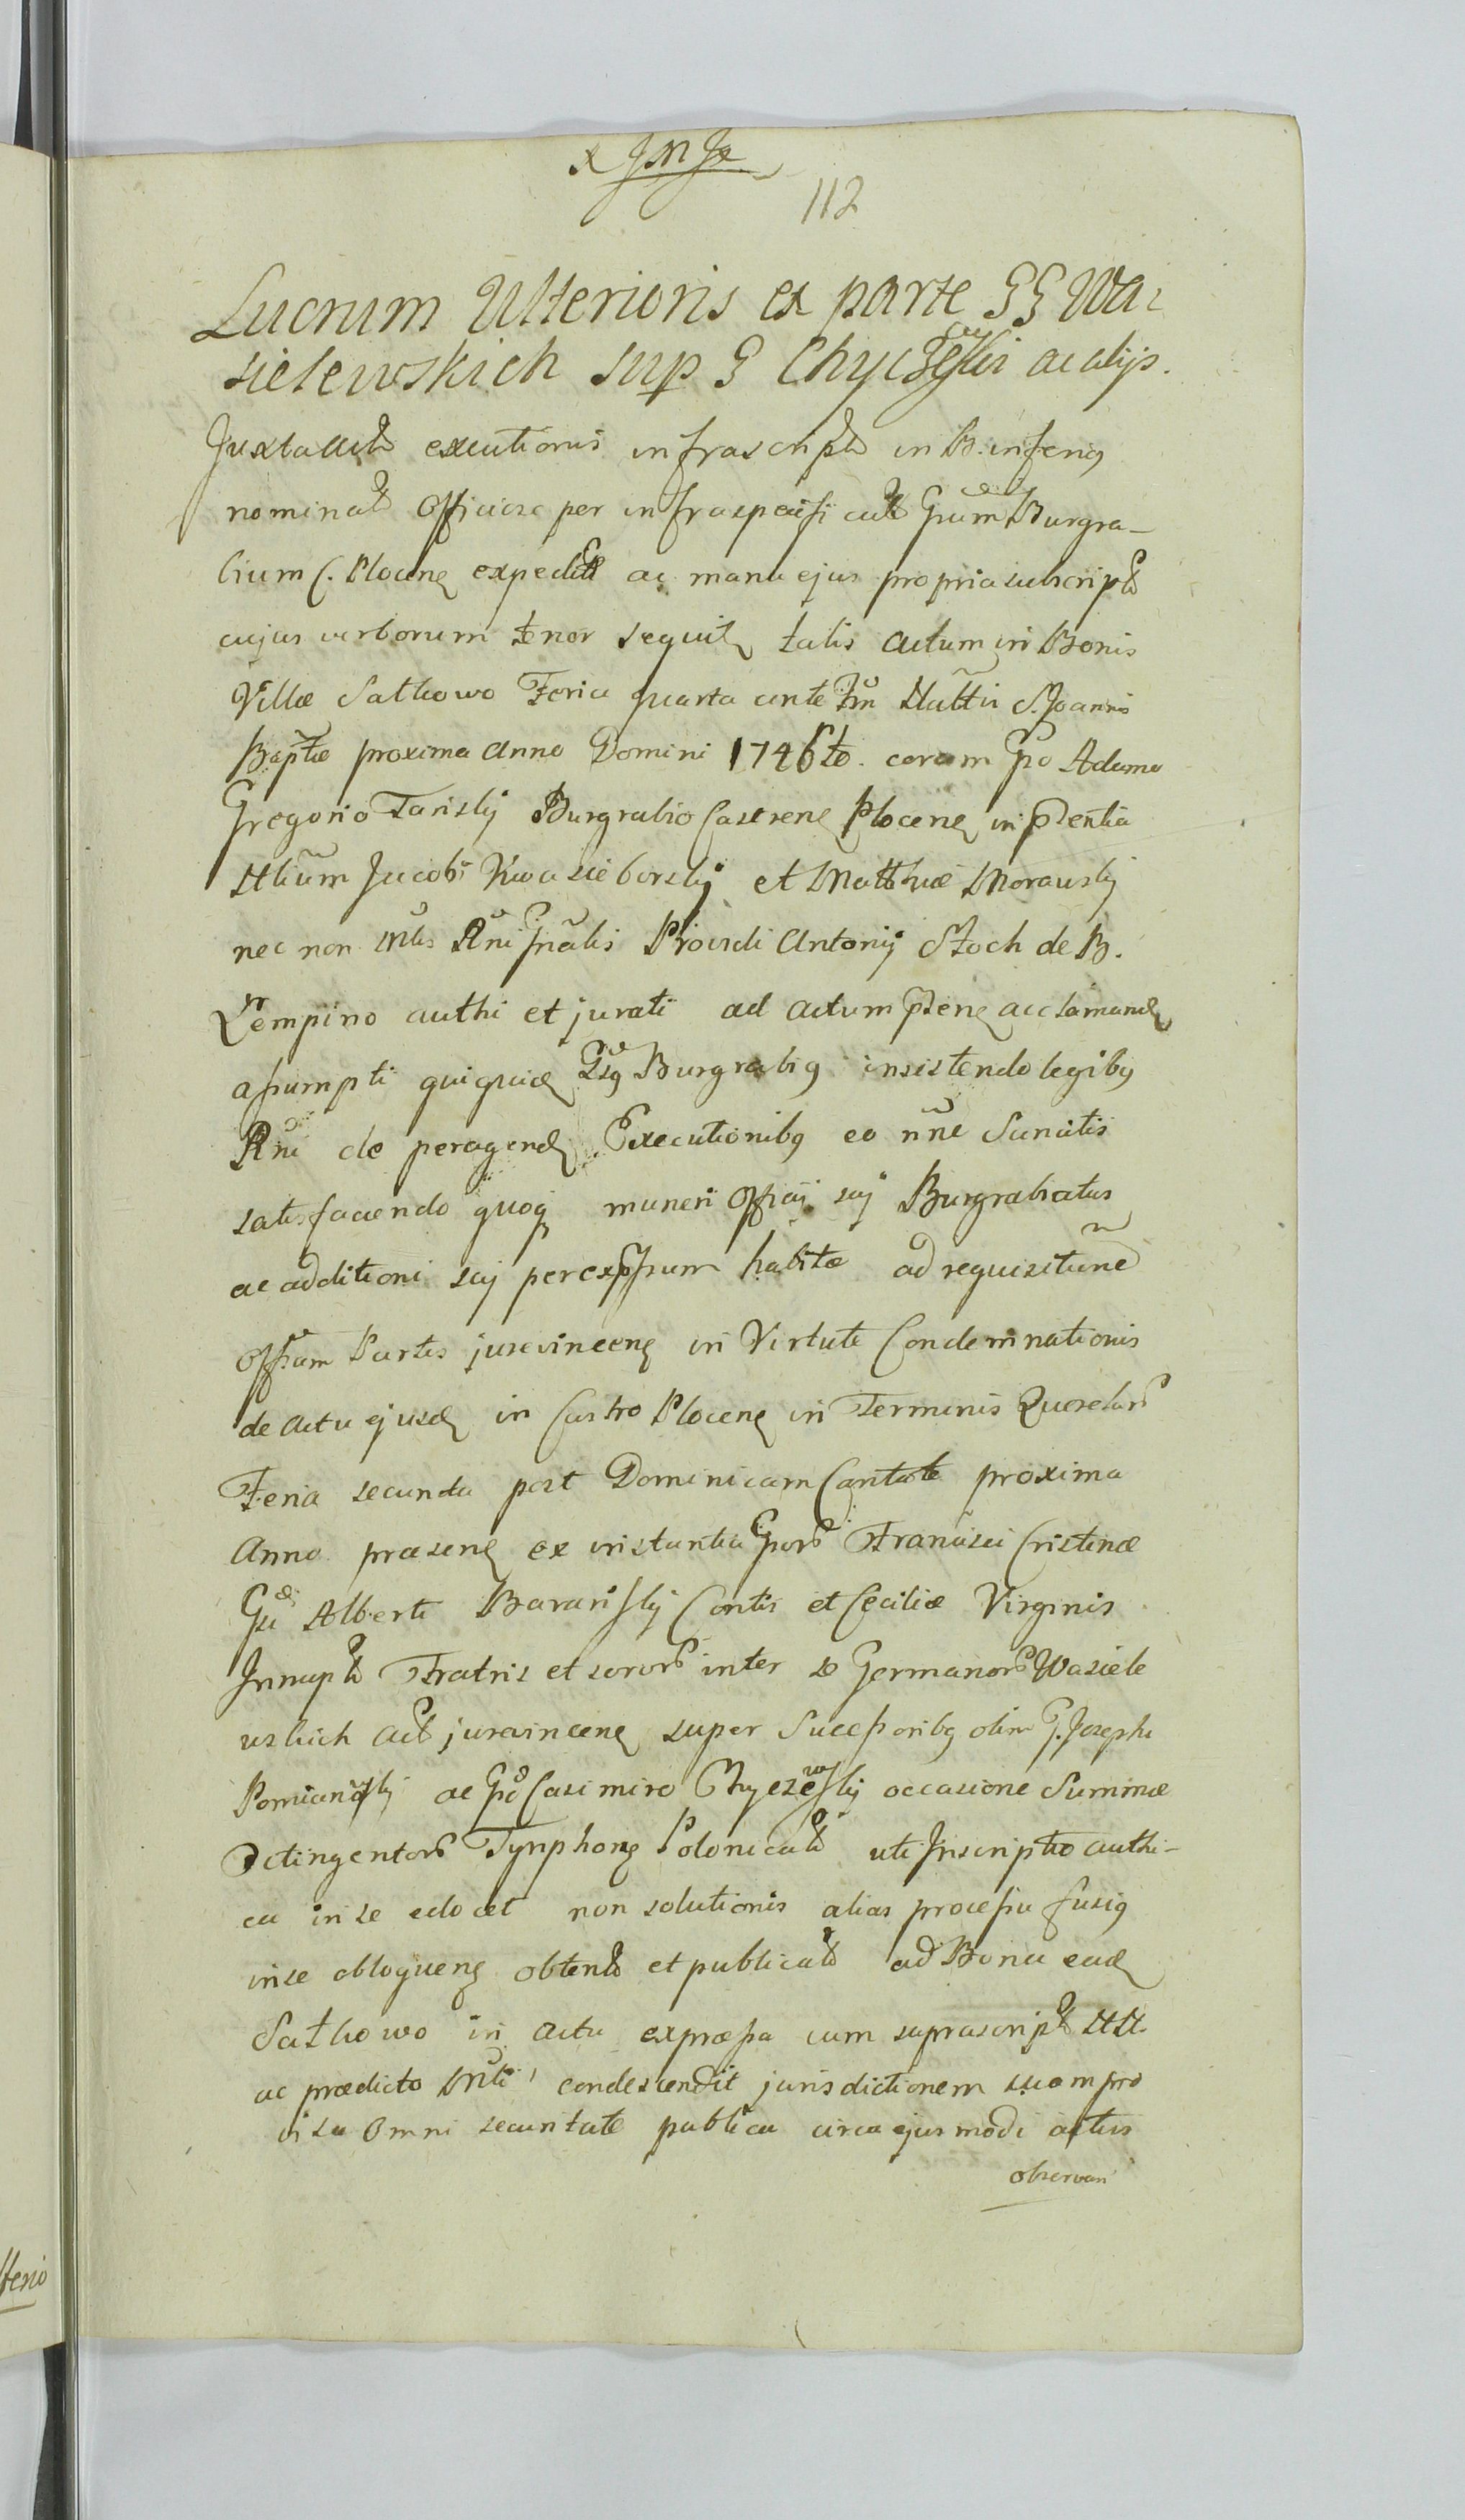 112
Lucrum Ulterioris ex parte GG Wa-
sielewskich sup G Chyczewski ac alijs.
Juxta actu executionis infrascript in B. inferig
nominat Officiose per infraspecificat Grum Burgra-
bium C. Plocens expedit ac manu ejus propria subscript
cujus verborum tenor sequit talis Actum in Bonis
Villæ Satkowo Feria quarta ante Ftm Nattis S. Joannis
Baptæ proxima Anno Domini 1746to. coram Gso Adamo
Gregorio Tariskij Burgrabio Castrens Plocens in pdentia
Nlium Jacobi Kwasieborskij et Matthiæ Morawskij
nec non Mtis Rni Gnalis Providi Antonij Stoch de B.
Lempino authi et jurati ad actum pdens acclamand
assumpti quiquid Gsg Burgrabig insistendo legibg
Rni de peragend Executionibg eo nne Sancitis
satisfaciendo quoq muneri Officij suj Burgrabiatus
ac additioni suj perexpssum habitæ ad requisitune
Offsam Partis jurevincens in Virtute Condemnationis
de actu ejusd in Castro Plocens in Terminis Querelar
Feria secunda post Dominicam Cantate proxima
Anno præsens ex instantia Gsor Francisci Cristinæ
Gsi Alberti Baranskij Contis et Ceciliæ Virginis
Innupt Fratris et soror inter se Germanor Wasiele
wskich act jurevincens super Successoribg olim G. Josephi
Pomianskij ac Gso Casimiro Chyczewskij occasione Summæ
Octingentor Tynphong Polonicali uti Inscriptio authi-
ca in se edocet non solutionis alias processu fusig
inse obloquens obtent et publicat ad Bona ead
Satkowo in actu expræssa cum suprascript NN.
ac prædicto Mtli condescendit jurisdictionem suam pro
visa omni securitate publica circa ejusmodi actus
observari